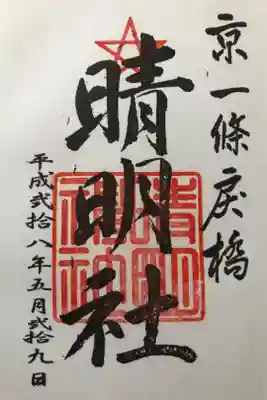 京一條戻橋
晴明社
晴明神社
平成弐拾八年五月弐拾九日